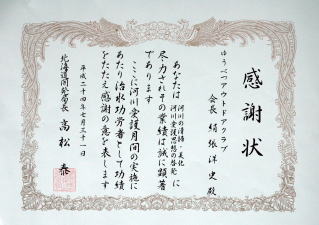 感謝状
ゆうべつアウトドアクラブ
会長 絹張洋史殿
あなたは河川の清掃・美化河川愛護思想の啓発に
尽力されその業績は誠に顕著
であります
ここに河川愛護月間の実施に
あたり治水功労者として功績
をたたえ感謝の意を表します
平成二十四年七月三十一日
北海道開発局長 高松泰